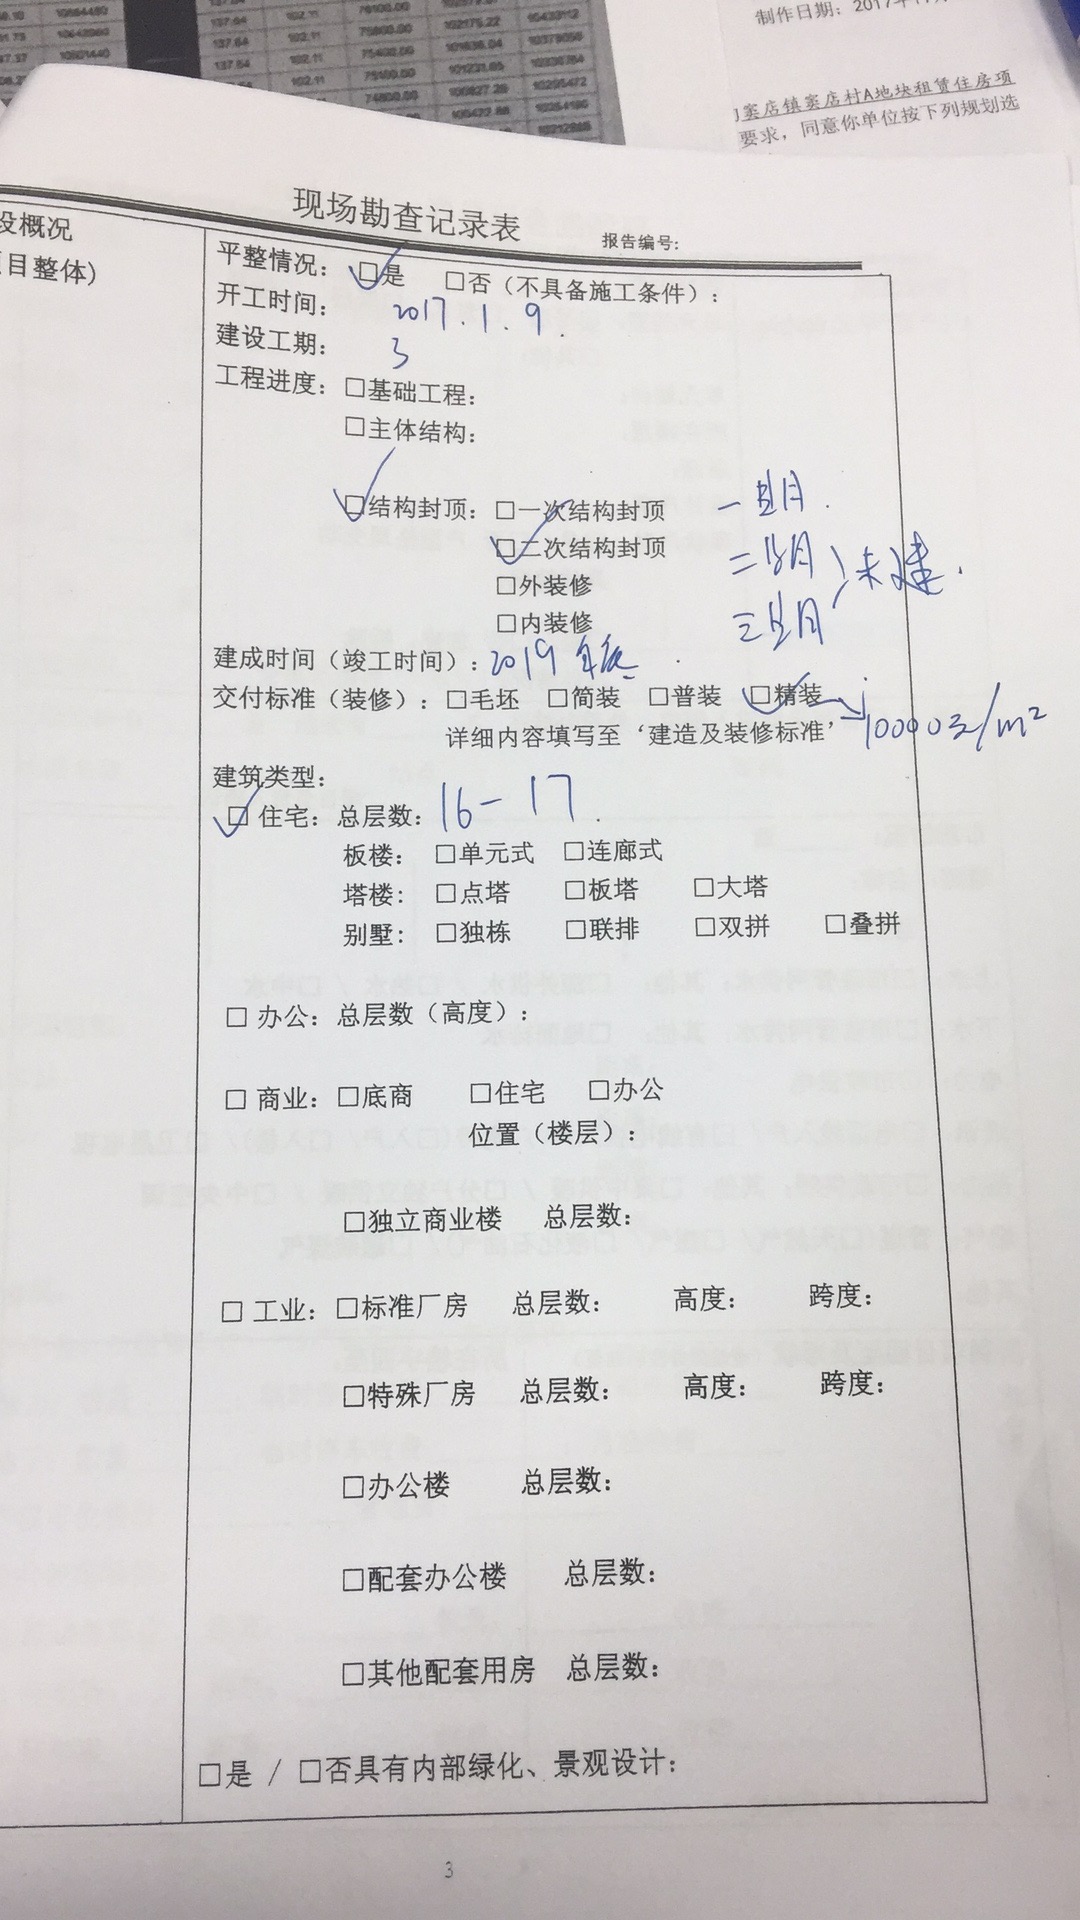 制作日期：2017年11
窦店镇窦店村A地块租赁住房项
要求，同意你单位按下列规划选
137.64 102.11 75800.00 102175.22 10430112
137.64 102.11 75400.00 101636.04 10378050
137.64 102.11 75100.00 101231.65
102.11 74800.00 100827.26 10295472
现场勘查记录表
报告编号：
设概况
目整体)
平整情况：☑是 □否（不具备施工条件）：
开工时间： 2017.1.9.
建设工期： 3
工程进度：□基础工程：
□主体结构：
☑结构封顶：□一次结构封顶
☑二次结构封顶 未建.
□外装修
□内装修
建成时间（竣工时间）：2019年底
交付标准（装修）：□毛坯 □简装 □普装 ☑精装
详细内容填写至‘建造及装修标准’ 10000元/m²
建筑类型：
☑ 住宅：总层数：16-17.
板楼： □单元式 □连廊式
塔楼： □点塔 □板塔 □大塔
别墅： □独栋 □联排 □双拼 □叠拼
□ 办公：总层数（高度）：
□ 商业：□底商 □住宅 □办公
位置（楼层）：
□独立商业楼 总层数：
□ 工业：□标准厂房 总层数： 高度： 跨度：
□特殊厂房 总层数： 高度： 跨度：
□办公楼 总层数：
□配套办公楼 总层数：
□其他配套用房 总层数：
□是 / □否具有内部绿化、景观设计：
3